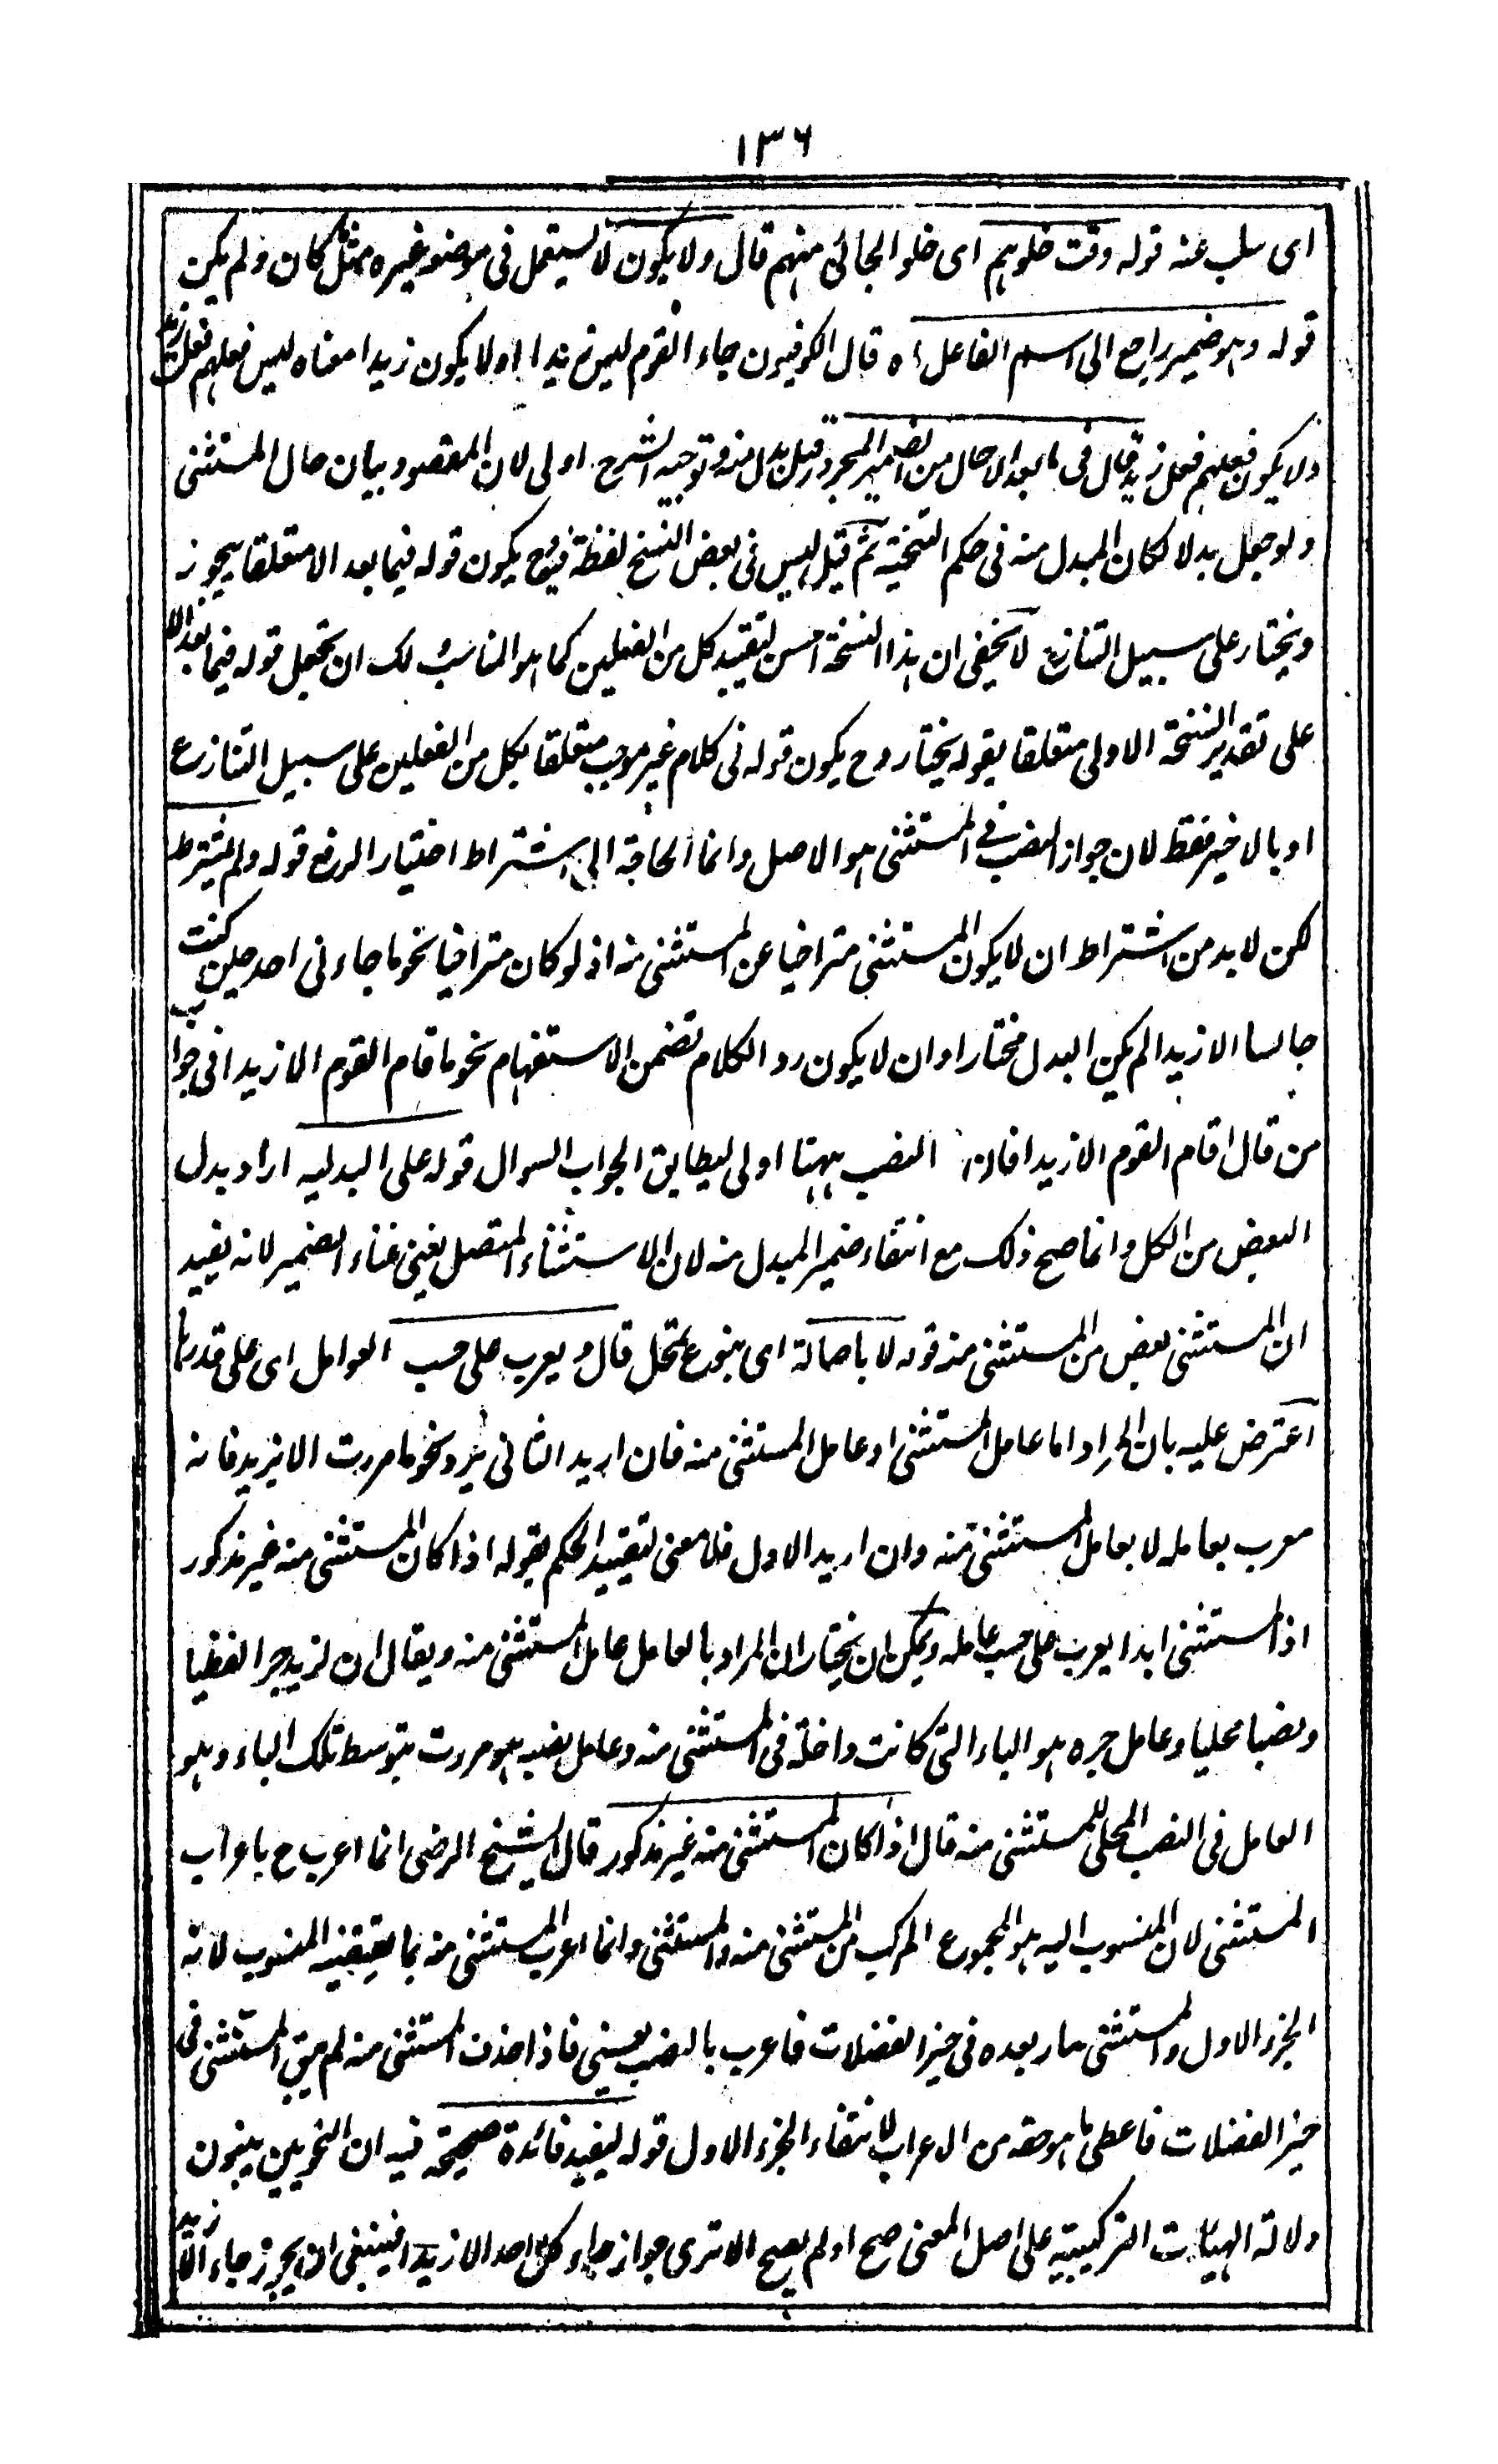 ١٣٦
اى سلب عنه قوله وقت خلوهم اى خلو الجائى منهم قال ولا يكون لا يستعمل فى موضعه غيره مثل كان ولم يكن
قوله وهو ضمير راجع الى اسم الفاعل اه قال الكوفيون جاء القوم ليس زيدا او لا يكون زيدا معناه ليس فعلهم فعل زيد
ولا يكون فعلهم فعل زيد قال فى ما بعد الا حال من الضمير المجرور قيل بدل منه وتوجيه الشرح اولى لان المقصود بيان حال المستثنى
ولو جعل بدلا لكان المبدل منه فى حكم التنحية ثم قيل ليس فى بعض النسخ لفظة فيه وح يكون قوله فيما بعد الا متعلقا بيجوز
ويختار على سبيل التنازع لا يخفى ان هذا النسخة احسن لتقييد كل من الفعلين كما هو المناسب ولك ان تجعل قوله فيما بعد الا
على تقدير النسخة الاولى متعلقا بقوله يختار وح يكون قوله فى كلام غير موجب متعلقا بكل من الفعلين على سبيل التنازع
او بالاخير فقط لان جواز النصب فى المستثنى هو الاصل وانما الحاجة الى اشتراط اختيار الرفع قوله ولم يشترط
لكن لا بد من اشتراط ان لا يكون المستثنى متراخيا عن المستثنى منه اذ لو كان متراخيا نحو ما جاءنى احد حين كنت
جالسا الا زيدا لم يكن البدل مختارا وان لا يكون رد الكلام تضمن الاستفهام نحو ما قام القوم الا زيدا فى جواب
من قال اقام القوم الا زيدا فان النصب ههنا اولى ليطابق الجواب السوال قوله على البدلية اراد بدل
البعض من الكل وانما صح ذلك مع انتفاء ضمير المبدل منه لان الاستثناء المتصل يغنى غناء الضمير لانه يفيد
ان المستثنى بعض من المستثنى منه قوله لا باصالة اى بنوع تمحل قال ويعرب على حسب العوامل اى على قدرها
اعترض عليه بان المراد اما عامل المستثنى او عامل المستثنى منه فان اريد الثانى يرد نحو ما مررت الا بزيد فانه
معرب بعامله لا بعامل المستثنى منه وان اريد الاول فلا معنى لتقييد الحكم بقوله اذا كان المستثنى منه غير مذكور
اذ المستثنى ابدا يعرب على حسب عامله ويمكن ان يختار ان المراد بالعامل عامل المستثنى منه ويقال ان لزيد جرا لفظيا
ونصبا محليا وعامل جره هو الباء التى كانت داخلة فى المستثنى منه وعامل نصبه هو مررت بتوسط تلك الباء وهو
العامل فى النصب المحلى للمستثنى منه قال اذا كان المستثنى منه غير مذكور قال الشيخ الرضى انما اعرب ح باعراب
المستثنى لان المنسوب اليه هو المجموع المركب من المستثنى منه والمستثنى وانما اعرب المستثنى منه بما يقتضيه المنسوب لانه
الجزء الاول والمستثنى صار بعده فى حيز الفضلات فاعرب بالنصب فاذا حذف المستثنى منه لم يبق المستثنى فى
حيز الفضلات فاعطى ما هو حقه من الاعراب لانتفاء الجزء الاول قوله ليفيد فائدة صحيحة فيه ان النحويين يبنون
دلالة الهيئات التركيبية على اصل المعنى صح او لم يصح الا ترى جواز جاء كل احد الا زيدا فينبغى ان يجوز جاء الا زيد